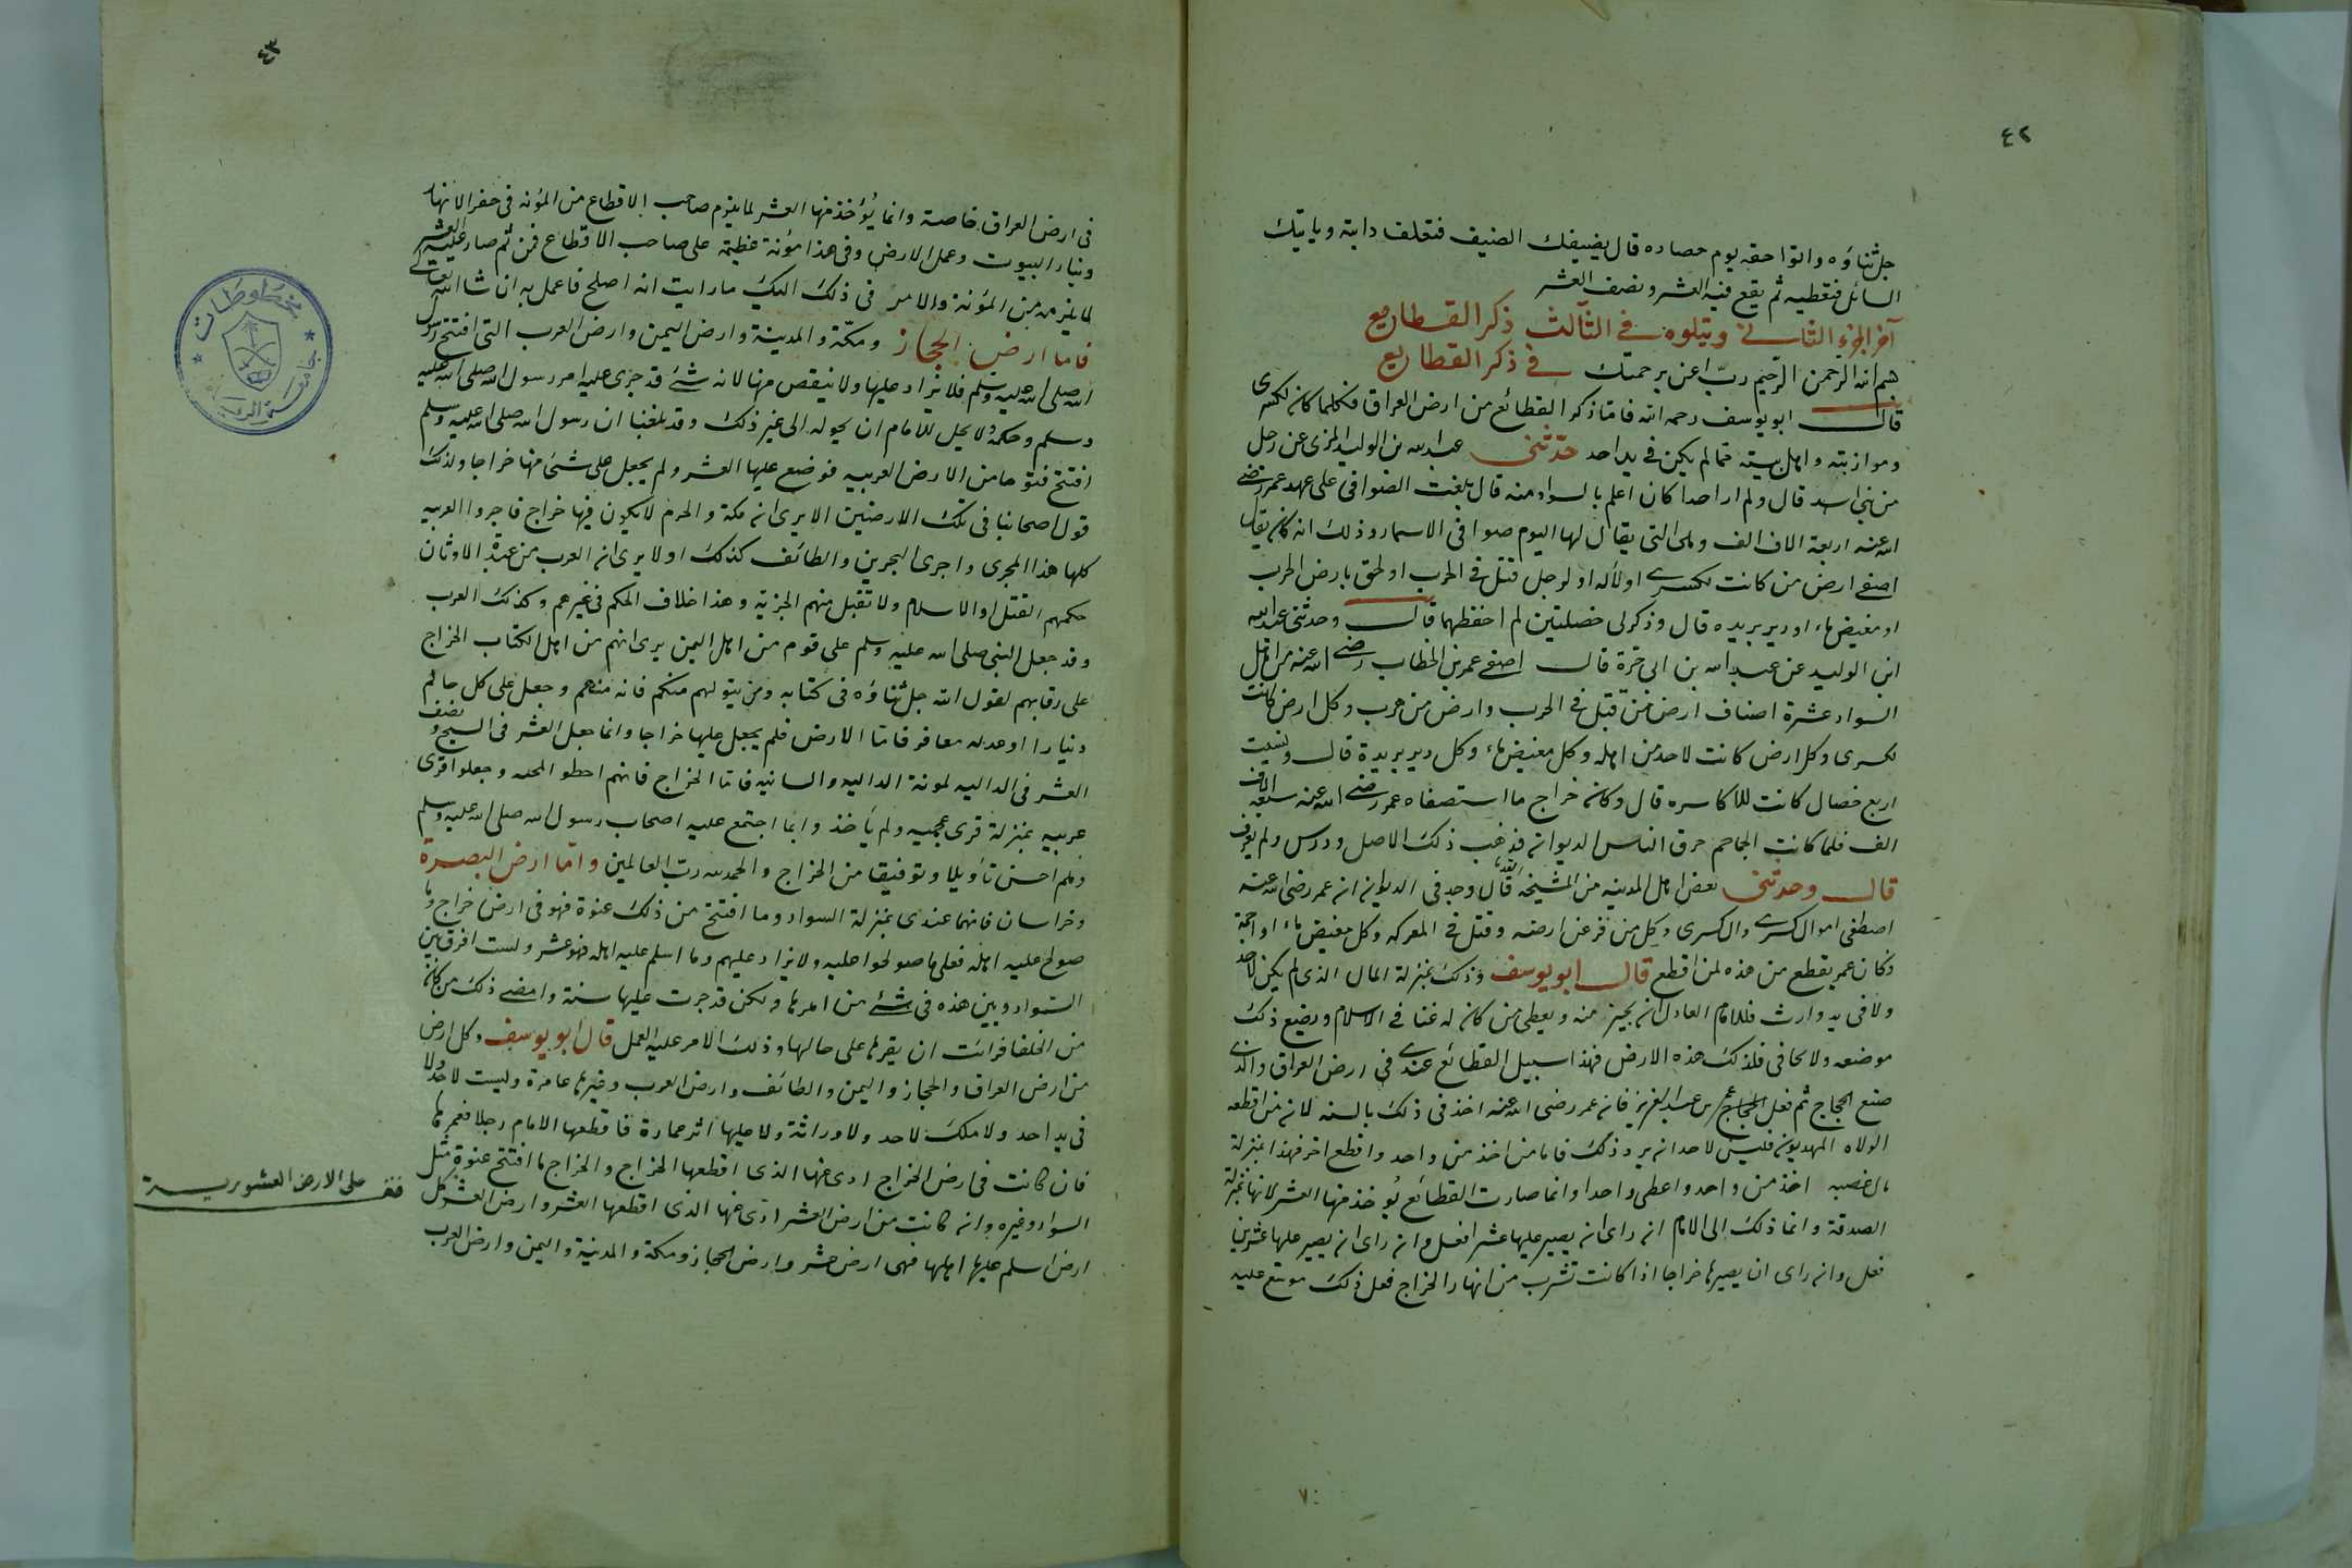 ٤٢
جل ثناؤه واتوا حقه يوم حصاده قال يضيفك الضيف فتعلف دابته وياتيك
السائل فتعطيه ثم يقع فيه العشر ونصف العشر
آخر الجزء الثاني ويتلوه في الثالث ذكر القطايع
بسم الله الرحمن الرحيم ربّ اعن برحمتك في ذكر القطايع
قال ابو يوسف رحمه الله فاما ذكر القطائع من ارض العراق فكلما كان لكسرى
ومرازبته واهل بيته مما لم يكن في يد احد حدثني عبد الله بن الوليد المزي عن رجل
من بني اسد قال ولم ار احدا كان اعلم بالسواد منه قال بلغت الصوافي على عهد عمر رضي
الله عنه اربعة الاف الف وهي التي يقال لها اليوم صوافي الاسمار وذلك انه كان يقال
اصفى ارض من كانت لكسرى او لأله او لرجل قتل في الحرب او لحق بارض الحرب
او مغيض ماء او دير بريده قال وذكر لي خصلتين لم احفظهما قال وحدثني عبد الله
ابن الوليد عن عبد الله بن ابي حرة قال اصفى عمر بن الخطاب رضي الله عنه من اهل
السواد عشرة اصناف ارض من قتل في الحرب وارض من هرب وكل ارض كانت
لكسرى وكل ارض كانت لاحد من اهله وكل مغيض ماء وكل دير بريدة قال ونسيت
اربع خصال كانت للاكاسره قال وكان خراج ما استصفاه عمر رضي الله عنه سبعة الاف
الف فلما كانت الجماجم حرق الناس الديوان فذهب ذلك الاصل ودرس ولم يعرف
قال وحدثني بعض اهل المدينه من المشيخة القدماء قال وجد في الديوان ان عمر رضي الله عنه
اصطفى اموال كسرى وال كسرى وكل من فر عن ارضه وقتل في المعركه وكل مغيض ماء او اجمة
وكان عمر يقطع من هذه لمن اقطع قال ابو يوسف وذلك بمنزلة المال الذي لم يكن لاحد
ولا في يد وارث فللامام العادل ان يجيز منه ويعطى من كان له غنا في الاسلام ويضع ذلك
موضعه ولا يحافي فلذلك هذه الارض فهذا سبيل القطائع عندي في ارض العراق والذي
صنع الحجاج ثم فعل عمر بن عبد العزيز فان عمر رضى الله عنه اخذ في ذلك بالسنه لان من اقطعه
الولاه المهديون فليس لاحد ان يرد ذلك فاما من اخذ من واحد واقطع اخر فهذا بمنزلة
مال غصبه اخذ من واحد واعطى واحدا وانما صارت القطائع يؤخذ منها العشر لانها بمنزلة
الصدقة وانما ذلك الى الامام ان راى ان يصير عليها عشرا فعل وان راى ان يصير عليها عشرين
فعل وان راى ان يصيرها خراجا اذا كانت تشرب من انهار الخراج فعل ذلك موسع عليه
٤٣
في ارض العراق خاصة وانما يُؤخذ منها العشر لما يلزم صاحب الاقطاع من المؤنه في حفر الانهار
وبناء البيوت وعمل الارض وفي هذا مؤنة عظيمة على صاحب الاقطاع فمن ثم صار عليه العشر
لما يلزمه من المؤنة والامر في ذلك اليك ما رايت انه اصلح فاعمل به ان شا الله تعالى
فاما ارض الحجاز ومكّة والمدينة وارض اليمن وارض العرب التي افتتح رسول
الله صلى الله عليه وسلم فلا يزاد عليها ولا ينقص منها لانه شئ قد جرى عليه امر رسول الله صلى الله عليه
وسلم وحكمه ولا يحل للامام ان يحوله الى غير ذلك وقد بلغنا ان رسول الله صلى الله عليه وسلم
افتتح فتوحا من الارض العربيه فوضع عليها العشر ولم يجعل على شئ منها خراجا وكذلك
قول اصحابنا في تلك الارضين الا يرى ان مكة والحرم لا يكون فيها خراج فاجروا العربيه
كلها هذا المجرى واجرى البحرين والطائف كذلك اولا يرى ان العرب من عبدة الاوثان
حكمهم القتل او الاسلام ولا تقبل منهم الجزية وهذا خلاف الحكم في غيرهم وكذلك العرب
وقد جعل النبي صلى الله عليه وسلم على قوم من اهل اليمن يرى انهم من اهل الكتاب الخراج
على رقابهم لقول الله جل ثناؤه في كتابه ومن يتولهم منكم فانه منهم وجعل على كل حالم
دينارا او عدله معافر فاما الارض فلم يجعل عليها خراجا وانما جعل العشر في السيح ونصف
العشر في الداليه لمونة الداليه والسانيه فاما الخراج فانهم وجعلوا قرى
عربيه بمنزلة قرى عجميه ولم يأخذ وانما اجتمع عليه اصحاب رسول الله صلى الله عليه وسلم
وهم احسن تأويلا وتوفيقا من الخراج والحمد لله ربّ العالمين واما ارض البصرة
وخراسان فانهما عندي بمنزلة السواد وما افتتح من ذلك عنوة فهو في ارض خراج وما
صولح عليه اهله فعلى ما صولحوا عليه ولا يزاد عليهم وما اسلم عليه اهله فهو عشر ولست افرق بين
السواد وبين هذه في شئ من امرها ولكن قد جرت عليها سنة وامضى ذلك من كان
من الخلفا فرائت ان يقرها على حالها وذلك الامر عليه العمل قال ابو يوسف وكل ارض
من ارض العراق والحجاز واليمن والطائف وارض العرب وغيرها عامرة وليست لاحد ولا
في يد احد ولا ملك لاحد ولا وراثة ولا عليها اثر عمارة فاقطعها الامام رجلا فعمرها
فان كانت في ارض الخراج ادى عنها الذى اقطعها الخراج والخراج ما افتتح عنوة مثل
السواد وغيره وان كانت من ارض العشر ادّى عنها الذى اقطعها العشر وارض العشر كل
ارض اسلم عليها اهلها فهى ارض عشر وارض الحجاز ومكة والمدينة واليمن وارض العرب
قف على الارض العشورية
مخطوطات